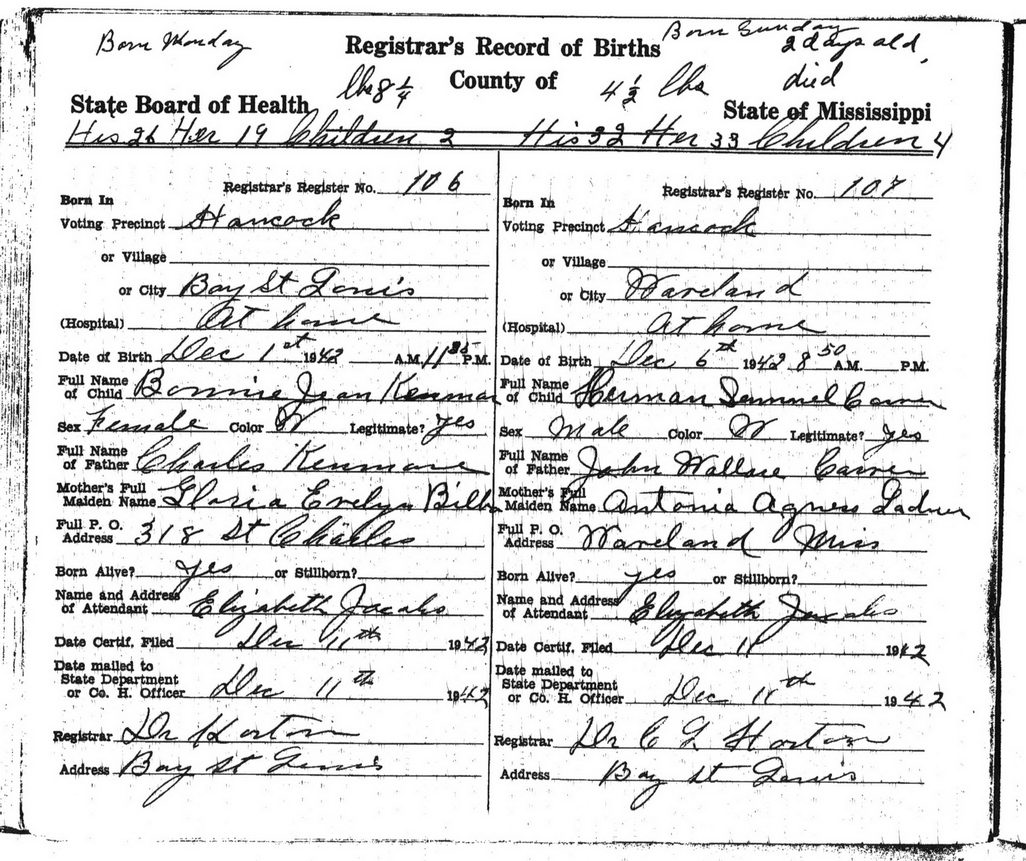 Born Monday
Born Sunday
2 days old,
died
Registrar's Record of Births
County of
lbs 8 1/4
4 1/2 lbs
State Board of Health
State of Mississippi
His 26 Her 19 Children 2
His 32 Her 33 Children 4
Registrar's Register No. 106
Born In
Voting Precinct Hancock
or Village
or City Bay St Louis
(Hospital) At home
Date of Birth Dec 1st 1942 A.M. 11 35 P.M.
Full Name of Child Bonnie Jean Kenmar
Sex Female Color W Legitimate? yes
Full Name of Father Charles Kenmare
Mother's Full Maiden Name Gloria Evelyn Bilbo
Full P. O. Address 318 St Charles
Born Alive? yes or Stillborn?
Name and Address of Attendant Elizabeth Jacobs
Date Certif. Filed Dec 11th 1942
Date mailed to State Department or Co. H. Officer Dec 11th 1942
Registrar Dr Horton
Address Bay St Louis
Registrar's Register No. 107
Born In
Voting Precinct Hancock
or Village
or City Waveland
(Hospital) At home
Date of Birth Dec 6th 1942 8 50 A.M. P.M.
Full Name of Child Herman Semmel Carver
Sex Male Color W Legitimate? yes
Full Name of Father John Wallace Carver
Mother's Full Maiden Name Antonia Agness Ladner
Full P. O. Address Waveland Miss
Born Alive? yes or Stillborn?
Name and Address of Attendant Elizabeth Jacobs
Date Certif. Filed Dec 11 1942
Date mailed to State Department or Co. H. Officer Dec 11th 1942
Registrar Dr C L Horton
Address Bay St Louis